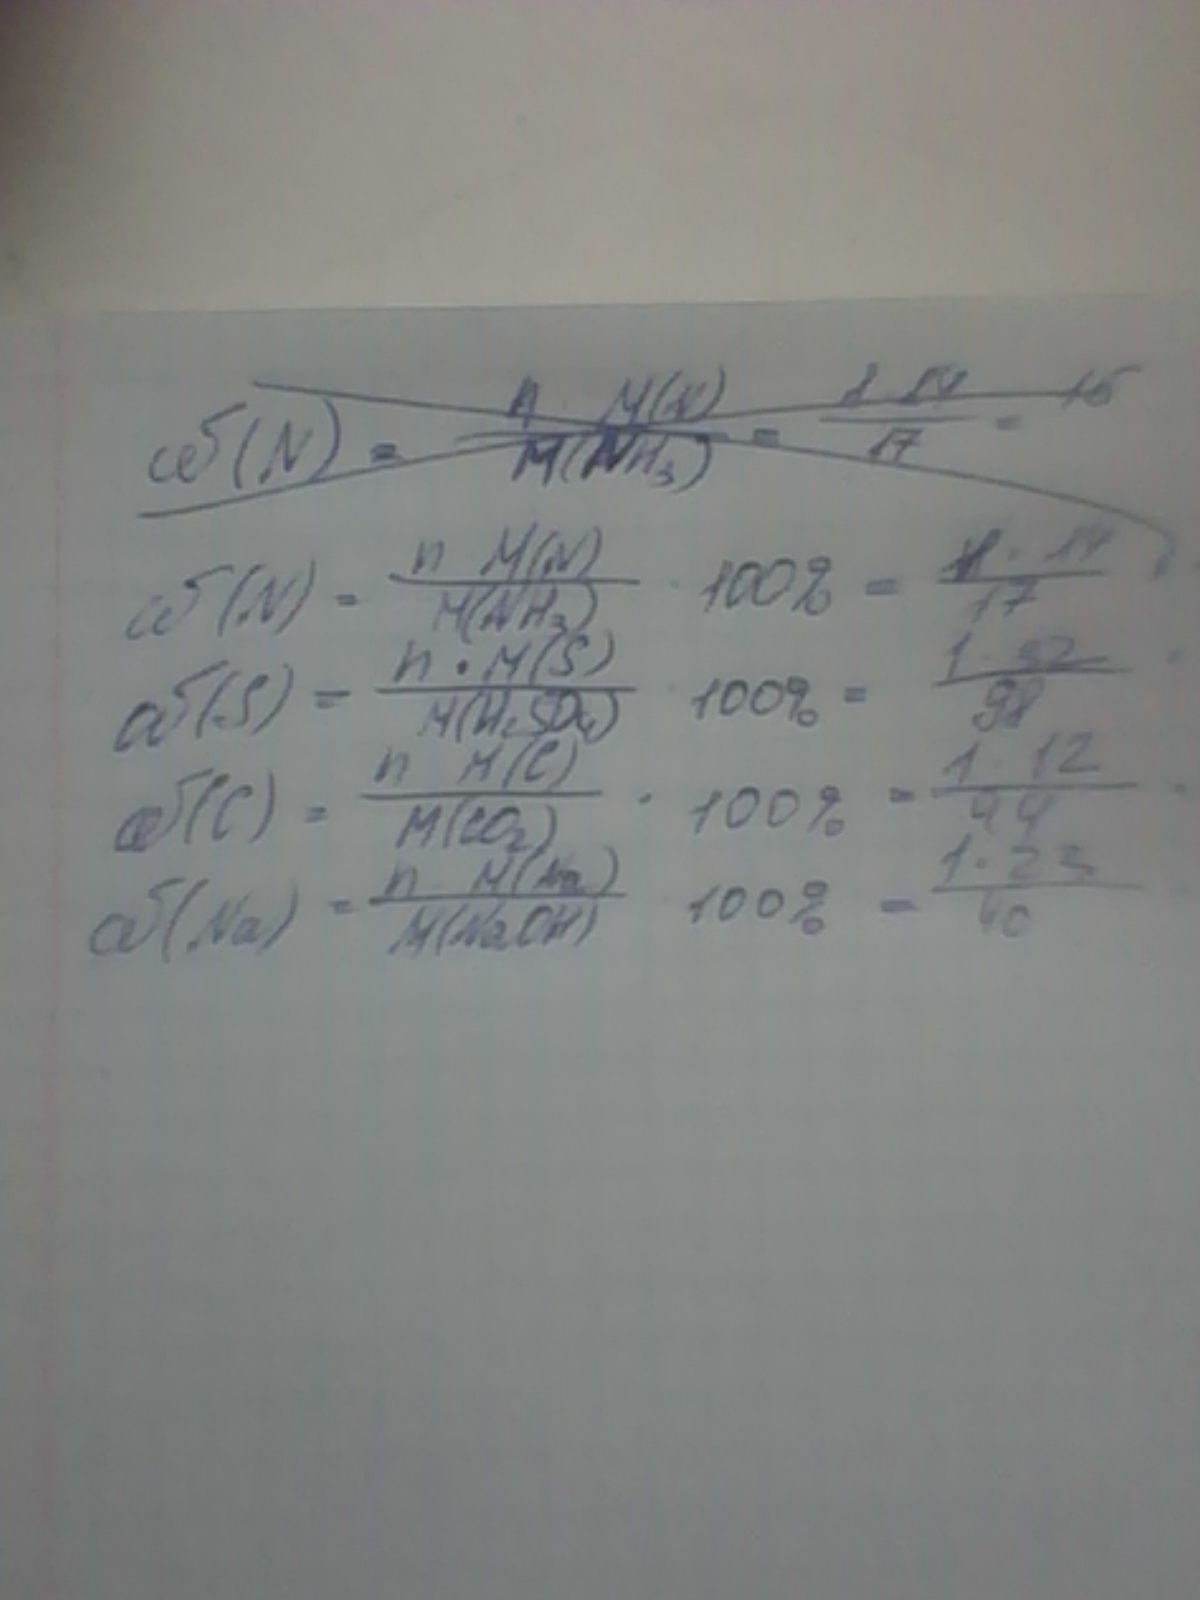 ω(N) = n · M(N) / M(NH₃) = 1 · 14 / 17 =
ω(N) = n · M(N) / M(NH₃) · 100% = 1 · 14 / 17 ·
ω(S) = n · M(S) / M(H₂SO₄) · 100% = 1 · 32 / 98 ·
ω(C) = n · M(C) / M(CO₂) · 100% = 1 · 12 / 44 ·
ω(Na) = n · M(Na) / M(NaOH) · 100% = 1 · 23 / 40